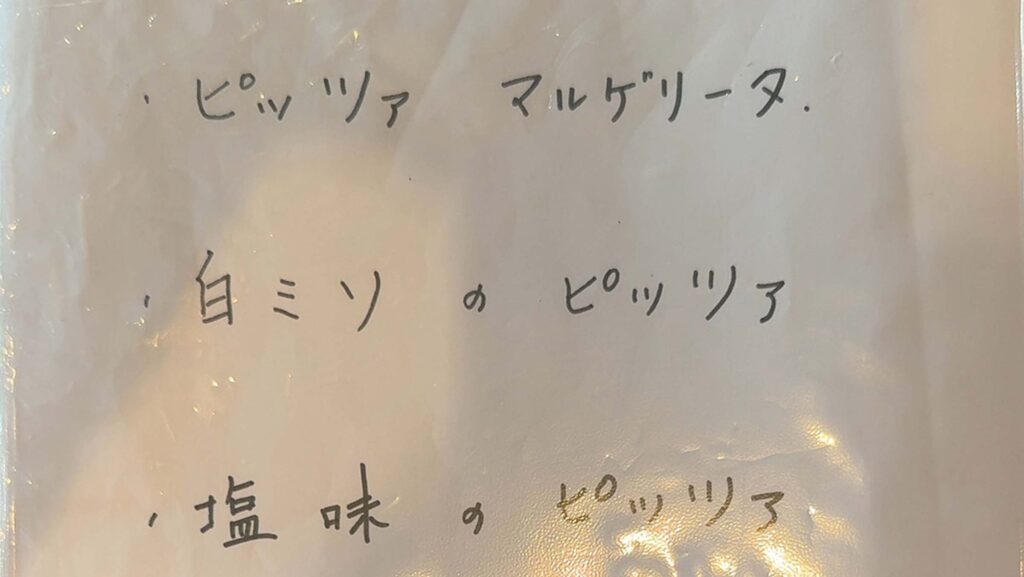 ・ピッツァ マルゲリータ.
・白ミソ の ピッツァ
・塩味 の ピッツァ